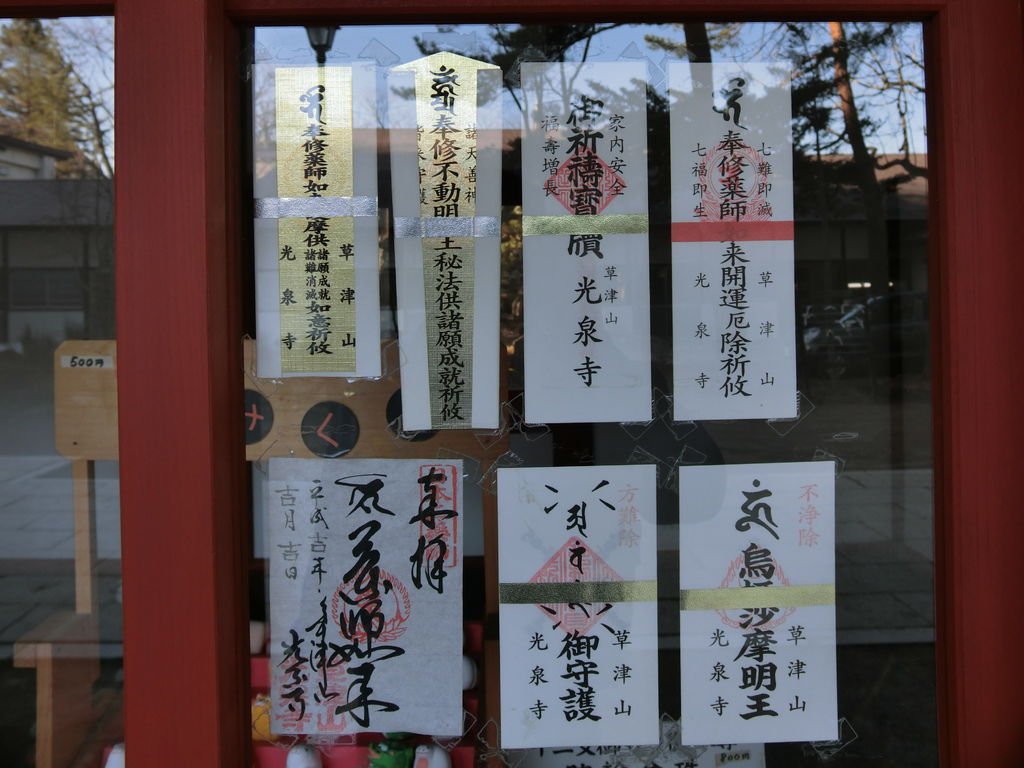 七難即滅
奉修薬師如来開運厄除祈攸
七福即生
草津山
光泉寺
家内安全
御祈禱寶牘
福壽増長
草津山
光泉寺
諸天善神
奉修不動明王秘法供諸願成就祈攸
奉修薬師如
摩供
諸願成就
諸難消滅
如意祈攸
草津山
光泉寺
500円
く
不浄除
烏
沙摩明王
草津山
光泉寺
方難除
御守護
草津山
光泉寺
奉拝
薬師如来
平成吉年
草津山
光泉寺
吉月吉日
800円